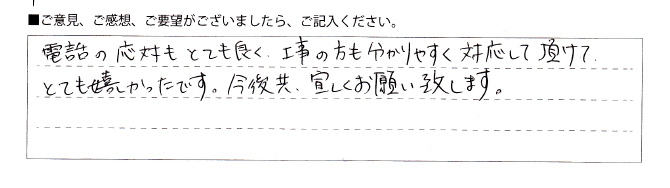 ■ご意見、ご感想、ご要望がございましたら、ご記入ください。
電話の応対もとても良く、工事の方も分かりやすく対応して頂けて、
とても嬉しかったです。今後共、宜しくお願い致します。